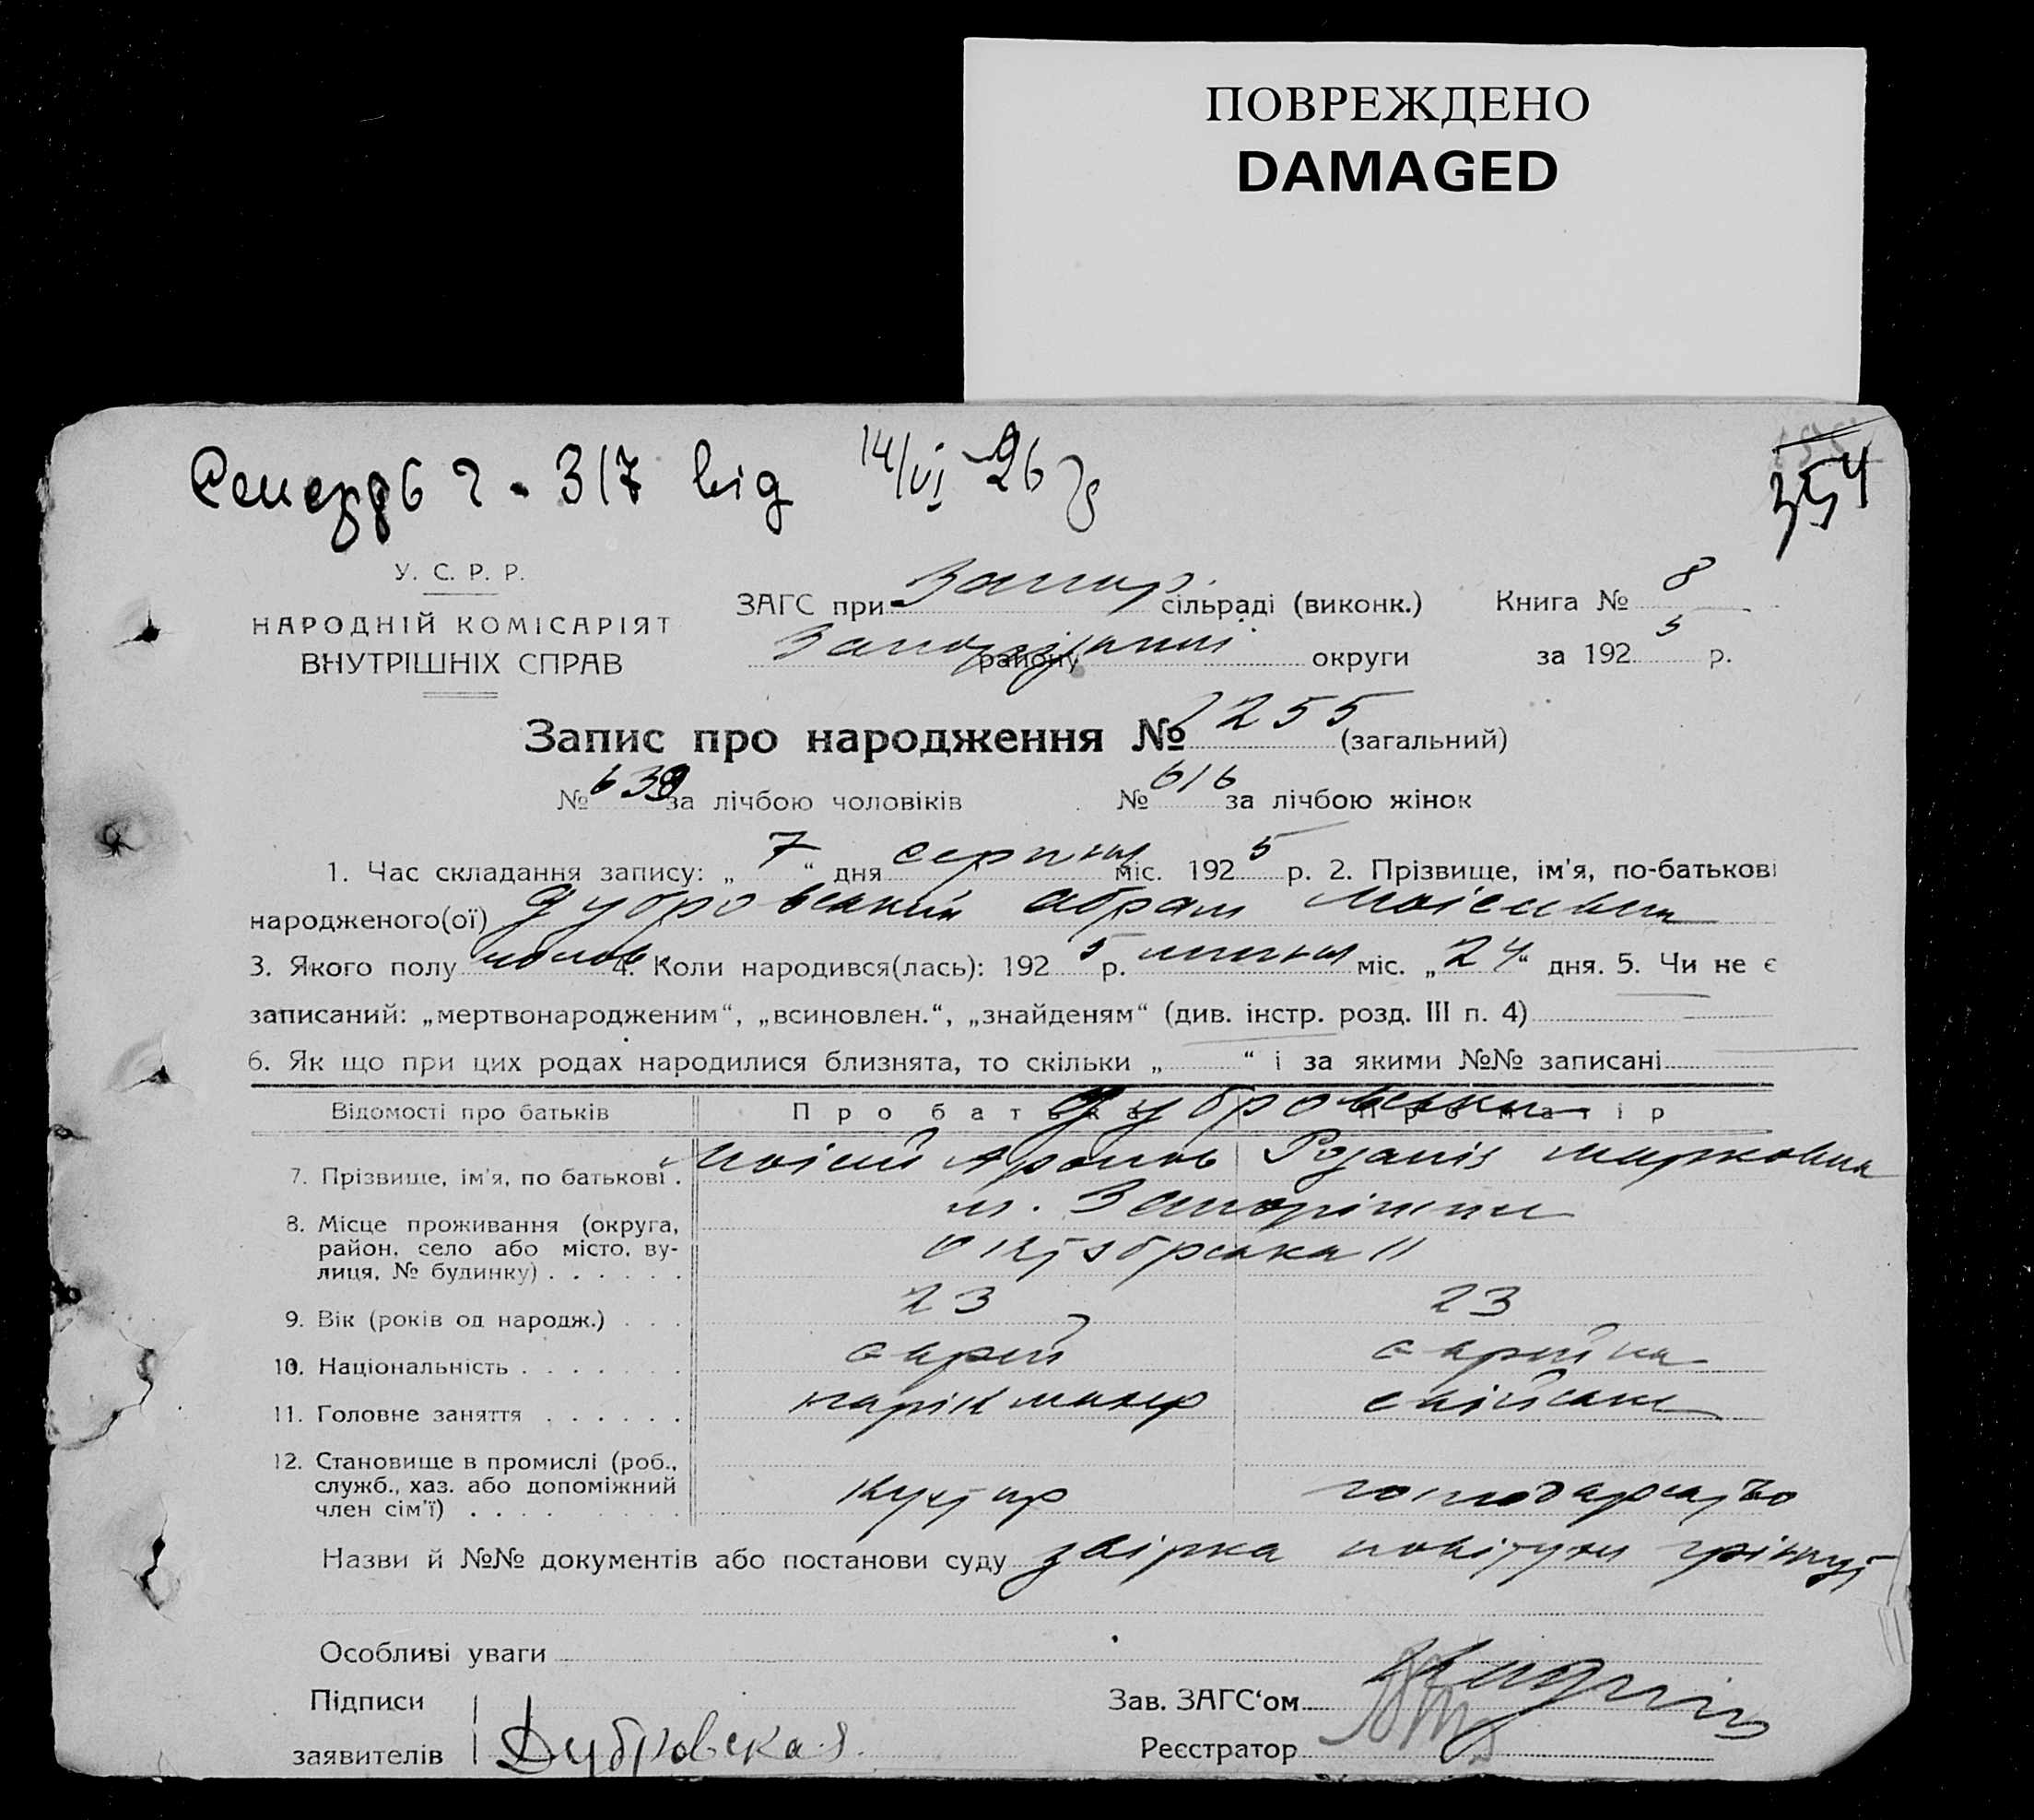 ПОВРЕЖДЕНО
DAMAGED
317 від 14/VI-26
354
У. С. Р. Р.
НАРОДНІЙ КОМІСАРІЯТ
ВНУТРІШНІХ СПРАВ
ЗАГС при Запор. сільраді (виконк.) Книга № 8
району округи за 1925 р.
Запис про народження № 1255 (загальний)
№ 639 за лічбою чоловіків № 616 за лічбою жінок
1. Час складання запису: „7“ дня серпня міс. 1925 р. 2. Прізвище, ім'я, по-батькові
народженого(ої) Дубровський Абрам
3. Якого полу чолов. 4. Коли народився(лась): 1925 р. липня міс. „24“ дня. 5. Чи не є
записаний: „мертвонародженим“, „всиновлен.“, „знайденям“ (див. інстр. розд. III п. 4)
6. Як що при цих родах народилися близнята, то скільки „ “ і за якими №№ записані
Відомості про батьків Про батька Про матір
Дубровськи
7. Прізвище, ім'я, по батькові . Мойсей Аронов Розалія Марковна
8. Місце проживання (округа, район, село або місто, вулиця, № будинку) . . . . . . м. Запоріжжя
11
9. Вік (років од народж.) . . . 23 23
10. Національність . . . . . . . еврей еврейка
11. Головне заняття . . . . . . парікмахер хатнє
12. Становище в промислі (роб., служб., хаз. або допоміжний член сім'ї) . . . . кустар господарство
Назви й №№ документів або постанови суду
Особливі уваги
Підписи Зав. ЗАГС‘ом
заявителів Дубровская Реєстратор